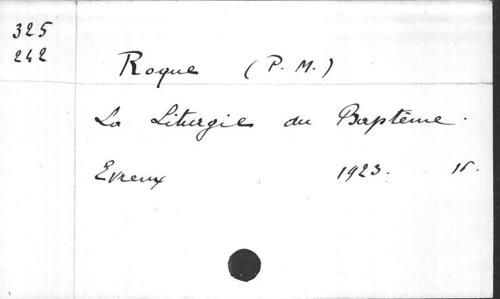 325
242
Roque (P. M.)
La Liturgie du Baptême.
Evreux 1923. 16.